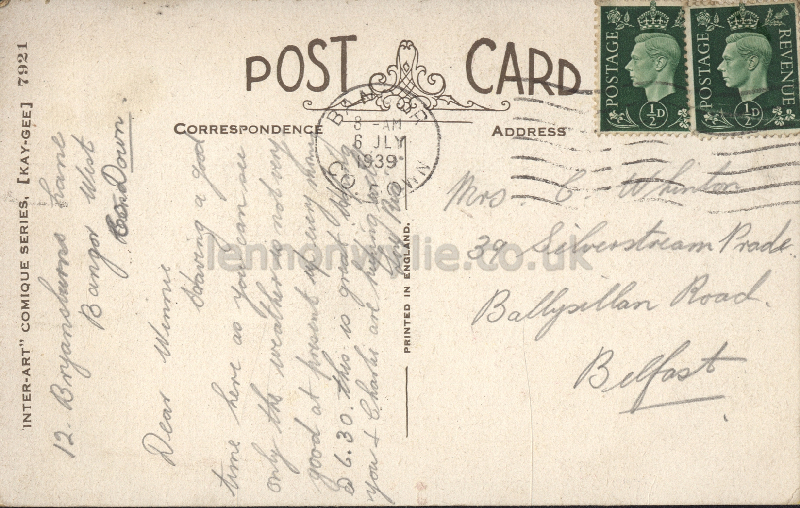 POST CARD
CORRESPONDENCE
ADDRESS
"INTER-ART" COMIQUE SERIES, [KAY-GEE] 7921
PRINTED IN ENGLAND.
POSTAGE
½D
POSTAGE REVENUE
½D
BANGOR
8 - AM
6 JLY
1939
CO. DOWN
12. Bryansburns Lane
Bangor West
Co. Down.
Dear Winnie
Having a good
time here as you can see
only the weather is not very
good at present up every mor
6.30. this is great
you & Charlie are
Mrs. C. Whinton
39 Silverstream Prade
Ballysillan Road.
Belfast
lennonwylie.co.uk